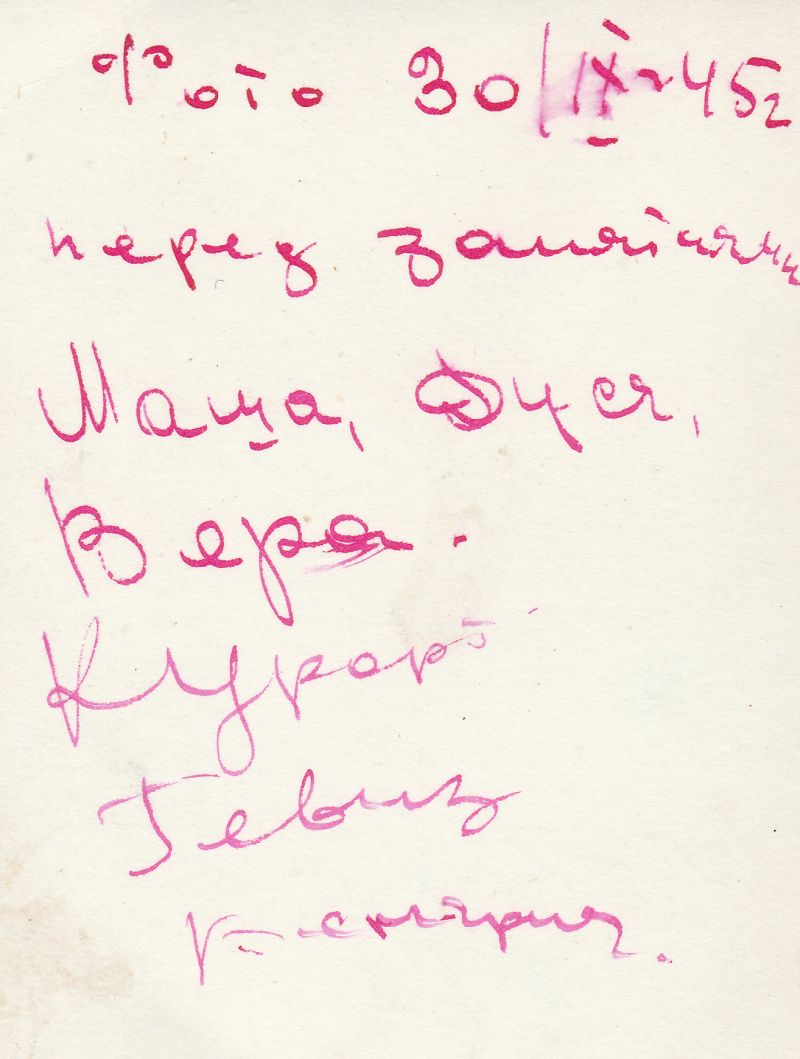 Фото 30/IX-45г
перед занятиями
Маша, Дуся,
Вера.
Курорт
Гевиз
Венгрия.